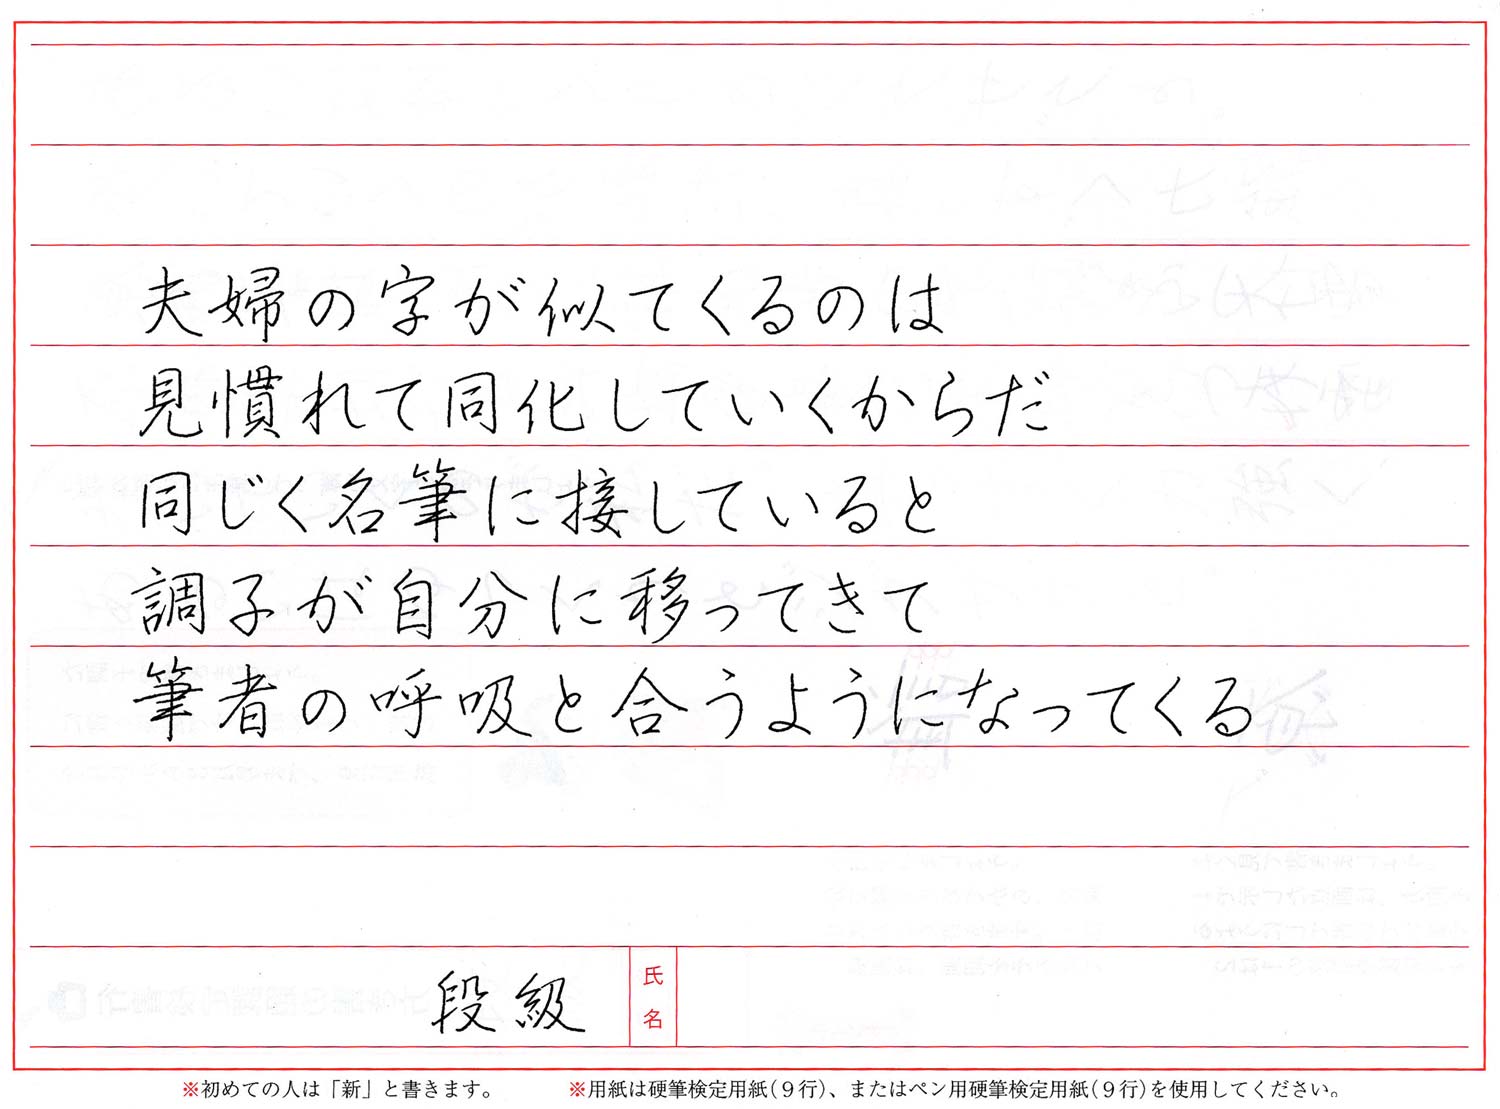 夫婦の字が似てくるのは
見慣れて同化していくからだ
同じく名筆に接していると
調子が自分に移ってきて
筆者の呼吸と合うようになってくる
段級
氏名
※初めての人は「新」と書きます。
※用紙は硬筆検定用紙(9行)、またはペン用硬筆検定用紙(9行)を使用してください。